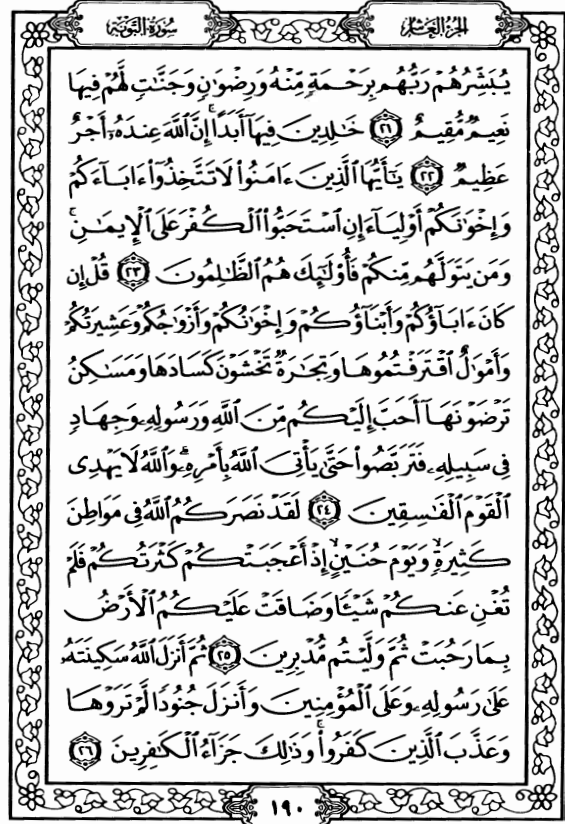 سُورَةُ التَّوْبَةِ الجُزْءُ العَاشِرُ
يُبَشِّرُهُمْ رَبُّهُم بِرَحْمَةٍ مِّنْهُ وَرِضْوَٰنٍ وَجَنَّٰتٍ لَّهُمْ فِيهَا
نَعِيمٌ مُّقِيمٌ ٢١ خَٰلِدِينَ فِيهَآ أَبَدًا ۚ إِنَّ ٱللَّهَ عِندَهُۥٓ أَجْرٌ
عَظِيمٌ ٢٢ يَٰٓأَيُّهَا ٱلَّذِينَ ءَامَنُوا۟ لَا تَتَّخِذُوٓا۟ ءَابَآءَكُمْ
وَإِخْوَٰنَكُمْ أَوْلِيَآءَ إِنِ ٱسْتَحَبُّوا۟ ٱلْكُفْرَ عَلَى ٱلْإِيمَٰنِ ۚ
وَمَن يَتَوَلَّهُم مِّنكُمْ فَأُو۟لَٰٓئِكَ هُمُ ٱلظَّٰلِمُونَ ٢٣ قُلْ إِن
كَانَ ءَابَآؤُكُمْ وَأَبْنَآؤُكُمْ وَإِخْوَٰنُكُمْ وَأَزْوَٰجُكُمْ وَعَشِيرَتُكُمْ
وَأَمْوَٰلٌ ٱقْتَرَفْتُمُوهَا وَتِجَٰرَةٌ تَخْشَوْنَ كَسَادَهَا وَمَسَٰكِنُ
تَرْضَوْنَهَآ أَحَبَّ إِلَيْكُم مِّنَ ٱللَّهِ وَرَسُولِهِۦ وَجِهَادٍ
فِى سَبِيلِهِۦ فَتَرَبَّصُوا۟ حَتَّىٰ يَأْتِىَ ٱللَّهُ بِأَمْرِهِۦ ۗ وَٱللَّهُ لَا يَهْدِى
ٱلْقَوْمَ ٱلْفَٰسِقِينَ ٢٤ لَقَدْ نَصَرَكُمُ ٱللَّهُ فِى مَوَاطِنَ
كَثِيرَةٍ ۙ وَيَوْمَ حُنَيْنٍ ۙ إِذْ أَعْجَبَتْكُمْ كَثْرَتُكُمْ فَلَمْ
تُغْنِ عَنكُمْ شَيْـًٔا وَضَاقَتْ عَلَيْكُمُ ٱلْأَرْضُ
بِمَا رَحُبَتْ ثُمَّ وَلَّيْتُم مُّدْبِرِينَ ٢٥ ثُمَّ أَنزَلَ ٱللَّهُ سَكِينَتَهُۥ
عَلَىٰ رَسُولِهِۦ وَعَلَى ٱلْمُؤْمِنِينَ وَأَنزَلَ جُنُودًا لَّمْ تَرَوْهَا
وَعَذَّبَ ٱلَّذِينَ كَفَرُوا۟ ۚ وَذَٰلِكَ جَزَآءُ ٱلْكَٰفِرِينَ ٢٦
١٩٠